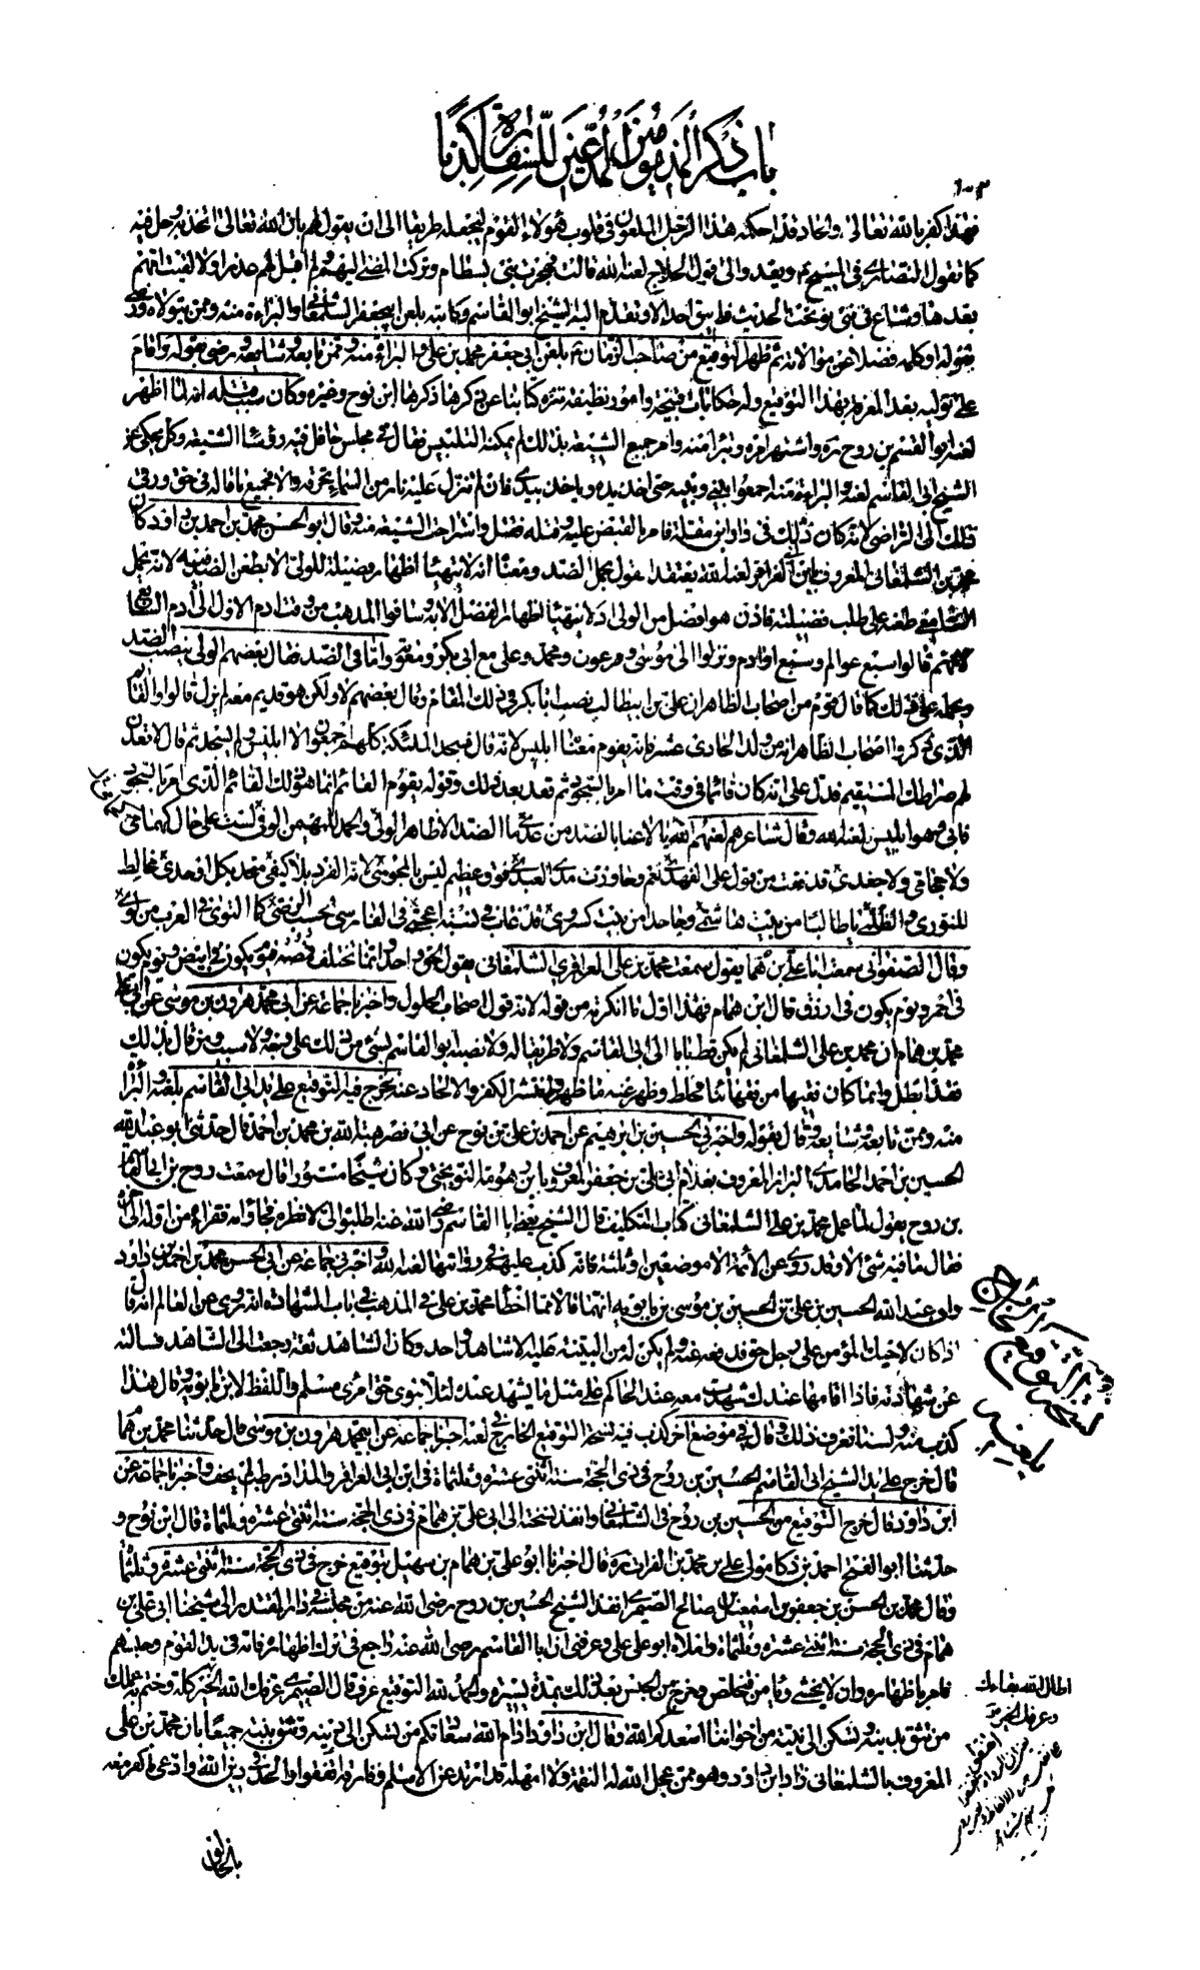 باب ذكر المذمومين المدعين للسفارة كذبا
١٠٣
فهذا كفر بالله تعالى والحاد قد احكمه هذا الرجل الملعون في قلوب هؤلاء القوم ليجعله طريقا الى ان يقول لهم بان الله تعالى اتحد به وحل فيه
كما تقول النصارى في المسيح ع ويعدو الى قول الحلاج لعنه الله قالت فهجرت بني بسطام وتركت المضي اليهم ولم اقبل لهم عذرا ولا لقيت امهم
بعدها وشاع في بني نوبخت الحديث فلم يبق احد الا وتقدم اليه الشيخ ابو القاسم وكاتبه بلعن ابي جعفر الشلمغاني والبراءة منه وممن يتولاه ورضي
بقوله او كلمه فضلا عن موالاته ثم ظهر التوقيع من صاحب الزمان ع بلعن ابي جعفر محمد بن علي والبراءة منه وممن تابعه وشايعه ورضي بقوله واقام
على توليه بعد المعرفة بهذا التوقيع وله حكايات قبيحة وامور فظيعة ننزه كتابنا عن ذكرها ذكرها ابن نوح وغيره وكان سبب قتله انه لما اظهر
لعنه ابو القسم بن روح ره واشتهر امره وتبرأ منه وامر جميع الشيعة بذلك لم يمكنه التلبيس فقال في مجلس حافل فيه رؤساء الشيعة وكل يحكي عن
الشيخ ابي القاسم لعنه والبراءة منه اجمعوا بيني وبينه حتى اخذ بيده وياخذ بيدي فان لم تنزل عليه نار من السماء تحرقه والا فجميع ما قاله في حق ورقى
ذلك الى الراضي لانه كان ذلك في دار ابن مقلة فامر بالقبض عليه وقتله فقتل واستراحت الشيعة منه وقال ابو الحسن محمد بن احمد بن داود كان
محمد بن الشلمغاني المعروف بابن ابي العزاقر لعنه الله يعتقد القول بحمل الضد ومعناه انه لا يتهيأ اظهار فضيلة للولي الا بطعن الضد فيه لانه يحمل
السامع طعنه على طلب فضيلته فاذن هو افضل من الولي اذ لا يتهيأ اظهار الفضل الا به وساقوا المذهب من وقت ادم الاول الى ادم السابع
لانهم قالوا سبع عوالم وسبع اوادم ونزلوا الى موسى وفرعون ومحمد وعلي مع ابي بكر ومعوية واما في الضد فقال بعضهم الولي ينصب الضد
ويحمله على ذلك كما قال قوم من اصحاب الظاهر ان علي بن ابيطالب نصب ابا بكر في ذلك المقام وقال بعضهم لا ولكن هو قديم معه لم يزل قالوا والقائم
الذي ذكروا اصحاب الظاهر انه من ولد الحادي عشر فانه يقوم معناه ابليس لانه قال فسجد الملئكة كلهم اجمعون الا ابليس ولم يسجد ثم قال لاقعدن
لهم صراطك المستقيم فدل على انه كان قائما في وقت ما امر بالسجود ثم قعد بعد ذلك وقوله يقوم القائم انما هو ذلك القائم الذي امر بالسجود
فابى وهو ابليس لعنه الله وقال شاعرهم لعنهم الله يا لاعنا بالضد من عدي ما الضد الا ظاهر الولي والحمد للمهيمن الوفي لست على حال كهمامي
ولا حجامي ولا جغدي قد فقت من قول على الفهدي نعم وجاوزت مدى العبدي فوق عظيم ليس بالمجوسي لانه الفرد بلا كيفي متحد بكل اوحدي مخالط
للنوري والظلمي يا طالبا من بيت هاشمي وجاحدا من بيت كسروي قد غاب في نسبة اعجمي في الفارسي الحسب الرضي كما التوى في العرب من لوي
وقال الصفواني سمعت ابا علي بن همام يقول سمعت محمد بن علي العزاقري الشلمغاني يقول الحق واحد وانما تختلف قمصه فيوم يكون في ابيض ويوم يكون
في احمر ويوم يكون في ازرق قال ابن همام فهذا اول ما انكرته من قوله لانه قول اصحاب الحلول واخبرنا جماعة عن ابي محمد هرون بن موسى عن ابي علي
محمد بن همام ان محمد بن علي الشلمغاني لم يكن قط بابا الى ابي القاسم ولا طريقا له ولا نصبه ابو القاسم بشيء من ذلك على وجه ولا سبب ومن قال بذلك
فقد ابطل وانما كان فقيها من فقهائنا فخلط وظهر عنه ما ظهر وانتشر الكفر والالحاد عنه فخرج فيه التوقيع على يد ابي القاسم بلعنه والبراءة
منه وممن تابعه وشايعه وقال بقوله واخبرني الحسين بن ابرهيم عن احمد بن علي بن نوح عن ابي نصر هبة الله بن محمد بن احمد قال حدثني ابو عبد الله
الحسين بن احمد الحامدي البزاز المعروف بغلام ابي علي بن جعفر المعروف بابن زهومة النوبختي وكان شيخا مستورا قال سمعت روح بن ابي القاسم
بن روح يقول لما عمل محمد بن علي الشلمغاني كتاب التكليف قال الشيخ يعني ابا القاسم رضي الله عنه اطلبوه الي لانظره فجاؤا به فقراه من اوله الى اخره
فقال ما فيه شيء الا وقد روي عن الأئمة الا موضعين او ثلثة فانه كذب عليهم في روايتها لعنه الله واخبرني جماعة عن ابي الحسن محمد بن احمد بن داود
وابي عبد الله الحسين بن علي بن الحسين بن موسى بن بابويه انهما قالا مما اخطأ محمد بن علي في المذهب في باب الشهادة انه روى عن العالم انه قال
اذا كان لاخيك المؤمن على رجل حق فدفعه عنه ولم يكن له من البينة عليه الا شاهد واحد وكان الشاهد ثقة رجعت الى الشاهد فسالته
عن شهادته فاذا اقامها عندك شهدت معه عند الحاكم على مثل ما يشهد عنده لئلا يتوى حق امرئ مسلم واللفظ لابن بابويه وقال هذا
كذب منه ولسنا نعرف ذلك وقال في موضع اخر كذب فيه نسخة التوقيع الخارج في لعنه اخبرنا جماعة عن ابي محمد هرون بن موسى قال حدثنا محمد بن همام
قال خرج على يد الشيخ ابي القاسم الحسين بن روح في ذي الحجة سنة اثنتي عشرة وثلثمائة في ابن ابي العزاقر والمداد رطب لم يجف واخبرنا جماعة عن
ابن داود قال خرج التوقيع من الحسين بن روح في الشلمغاني وانفذ نسخته الى ابي علي بن همام في ذي الحجة سنة اثنتي عشرة وثلثمائة قال ابن نوح و
حدثنا ابو الفتح احمد بن ذكا مولى علي بن محمد بن الفرات ره قال اخبرنا ابو علي بن همام بن سهيل بتوقيع خرج في ذي الحجة سنة اثنتي عشرة وثلثمائة
وقال محمد بن الحسن بن جعفر بن اسمعيل بن صالح الصيمري انفذ الشيخ الحسين بن روح رضي الله عنه من مجلسه في دار المقتدر الى شيخنا ابي علي بن
همام في ذي الحجة سنة اثنتي عشرة وثلثمائة واملاه ابو علي علي وعرفني ان ابا القاسم رضي الله عنه راجع في ترك اظهاره فانه في يد القوم وحبسهم
فامر باظهاره وان لا يخشى ويامن فتخلص وخرج من الحبس بعد ذلك بمدة يسيرة والحمد لله التوقيع عرف قال الصيمري عرفك الله الخير كله وختم به عملك
من تثق بدينه وتسكن الى نيته من اخواننا اسعدكم الله وقال ابن داود ادام الله سعادتكم من تسكن الى دينه وتثق بنيته جميعا بان محمد بن علي
المعروف بالشلمغاني زاد ابن داود وهو ممن عجل الله له النقمة ولا امهله قد ارتد عن الاسلام وفارقه اتفقوا والحد في دين الله وادعى ما كفر معه
بالخالق
نسخة التوقيع
بلعنه
اطال الله بقاءك
وعرفك الخير